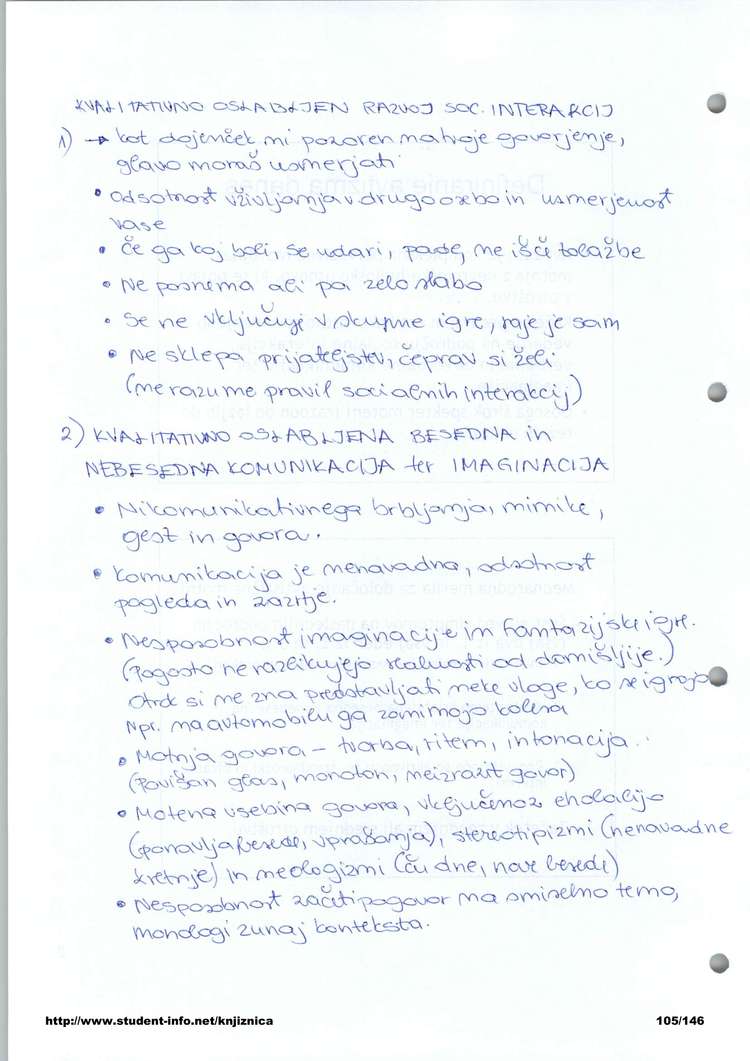 KVALITATIVNO OSLABLJEN RAZVOJ SOC. INTERAKCIJ
1) → kot dojenček ni pozoren na tvoje govorjenje,
glavo moraš usmerjati
• Odsotnost vživljanja v drugo osebo in usmerjenost
vase
• Če ga kaj boli, se udari, pade, ne išče tolažbe
• Ne posnema ali pa zelo slabo
• Se ne vključuje v skupne igre, raje je sam
• Ne sklepa prijateljstv, čeprav si želi
(ne razume pravil socialnih interakcij)
2) KVALITATIVNO OSLABLJENA BESEDNA in
NEBESEDNA KOMUNIKACIJA ter IMAGINACIJA
• Ni komunikativnega brbljanja, mimike,
gest in govora.
• Komunikacija je nenavadna, odsotnost
pogleda in zazrtje.
• Nesposobnost imaginacije in fantazijske igre.
(Pogosto ne razlikujejo realnosti od domišljije.)
Otrok si ne zna predstavljati neke vloge, ko se igrajo
Npr. na avtomobilu ga zanimajo kolesa
• Motnja govora – tvorba, ritem, intonacija.
(Povišan glas, monoton, neizrazit govor)
• Motena vsebina govora, vključenoz eholalijo
(ponavlja besede, vprašanja), stereotipizmi (nenavadne
kretnje) in neologizmi (čudne, nove besede)
• Nesposobnost začeti pogovor na smiselno temo,
monologi zunaj konteksta.
http://www.student-info.net/knjiznica
105/146